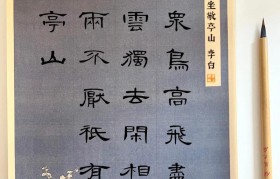 坐敬亭山 李白
眾鳥高飛盡
雲獨去閑相
兩不厭祇有
亭山